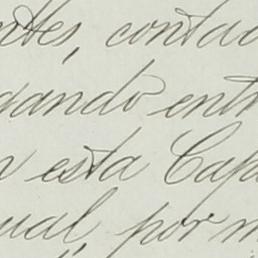 ntes, contad
gando entr
n esta Cap
ual, por m